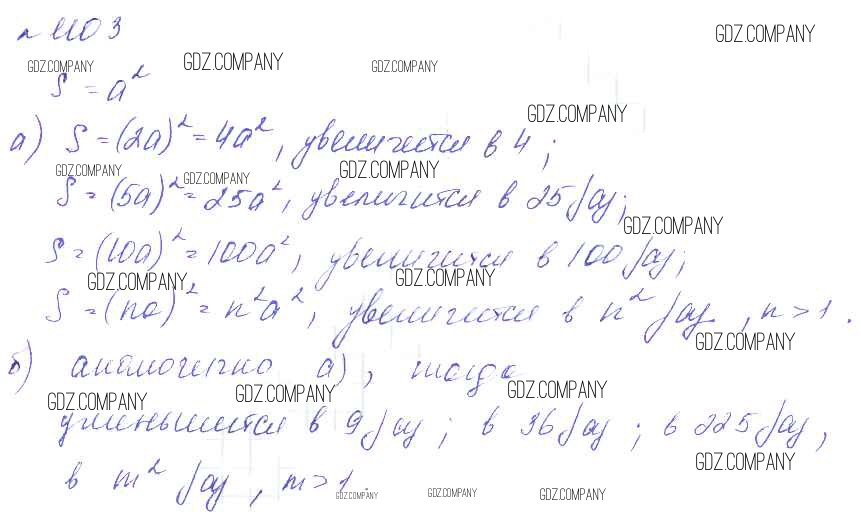 № 1103
GDZ.COMPANY
GDZ.COMPANY GDZ.COMPANY GDZ.COMPANY
S = a²
GDZ.COMPANY
а) S = (2a)² = 4a², увеличится в 4;
GDZ.COMPANY GDZ.COMPANY GDZ.COMPANY
S = (5a)² = 25a², увеличится в 25 раз;
GDZ.COMPANY
S = (10a)² = 100a², увеличится в 100 раз;
GDZ.COMPANY GDZ.COMPANY
S = (na)² = n²a², увеличится в n² раз, n > 1.
GDZ.COMPANY
б) аналогично а), тогда
GDZ.COMPANY GDZ.COMPANY GDZ.COMPANY
уменьшится в 9 раз; в 36 раз; в 225 раз,
GDZ.COMPANY
в m² раз, m > 1.
GDZ.COMPANY GDZ.COMPANY GDZ.COMPANY